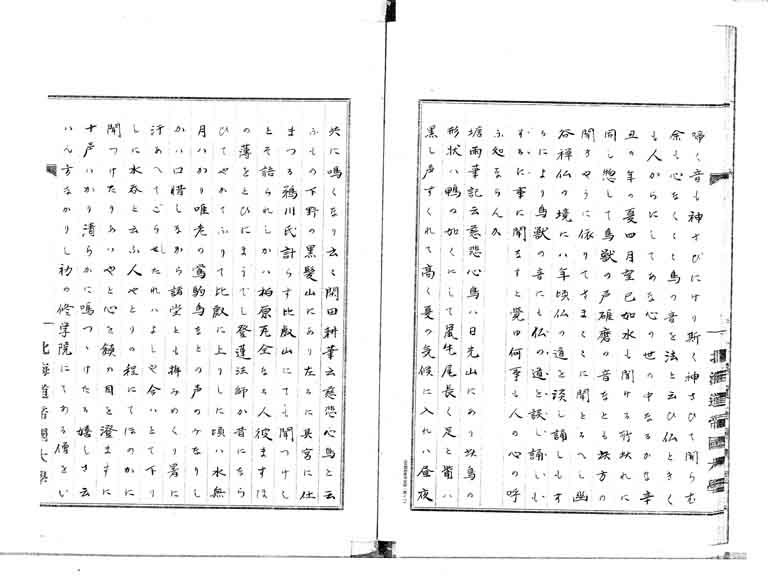 啼く音も神さびにけり斯く神さひて聞らむ
余も心なくくも鳥の音を法と云ひ仏ときく
も人からにしてあな心の世の中なるかな辛
丑の年の夏四月望已如水も聞ける所此れに
同し惣して鳥獣の声碓磨の音なとも其方の
聞くやうに依りてさまくに聞とるへし幽
谷禅仏の境にハ年頃仏の道を談し誦しもす
るにより鳥獣の音にも仏の道を談し誦しいも
するかに事に聞なすと覚ゆ何事も人の心の呼
ふ知ならんか
塘雨筆記云慈悲心鳥ハ日光山にあり此鳥の
形状ハ鴨の如くにして嵐毛尾長く足と觜ハ
黒し声すくれて高く夏の気候に入れハ昼夜
共に鳴くなり云く関田耕筆云慈悲心鳥と云
ふもの下野の黒髪山にあり左るに其宮に仕
まつる鴉川氏計らす比叡山にても聞つけし
とそ語られしかハ柏原瓦全なる人彼ますほ
の薄をとひにまうでし登蓮法師か昔になら
ひてやかてふりて比叡に上りしに頃ハ水無
月ハかり唯老の鶯駒鳥なとの声のミなりし
かハ口惜しなから諸堂とも拝みめくり暑に
汗あへてごうせたれハよしや今ハとて下り
しに水呑と云ふ人やとりの程にてほのかに
聞つけたりあハやと心を鎮め目を澄ますに
十声ハかり清らかに鳴つゝけたる嬉しさ云
ハん方なかりし初め修学院にてある僧をい
北海道帝国大学